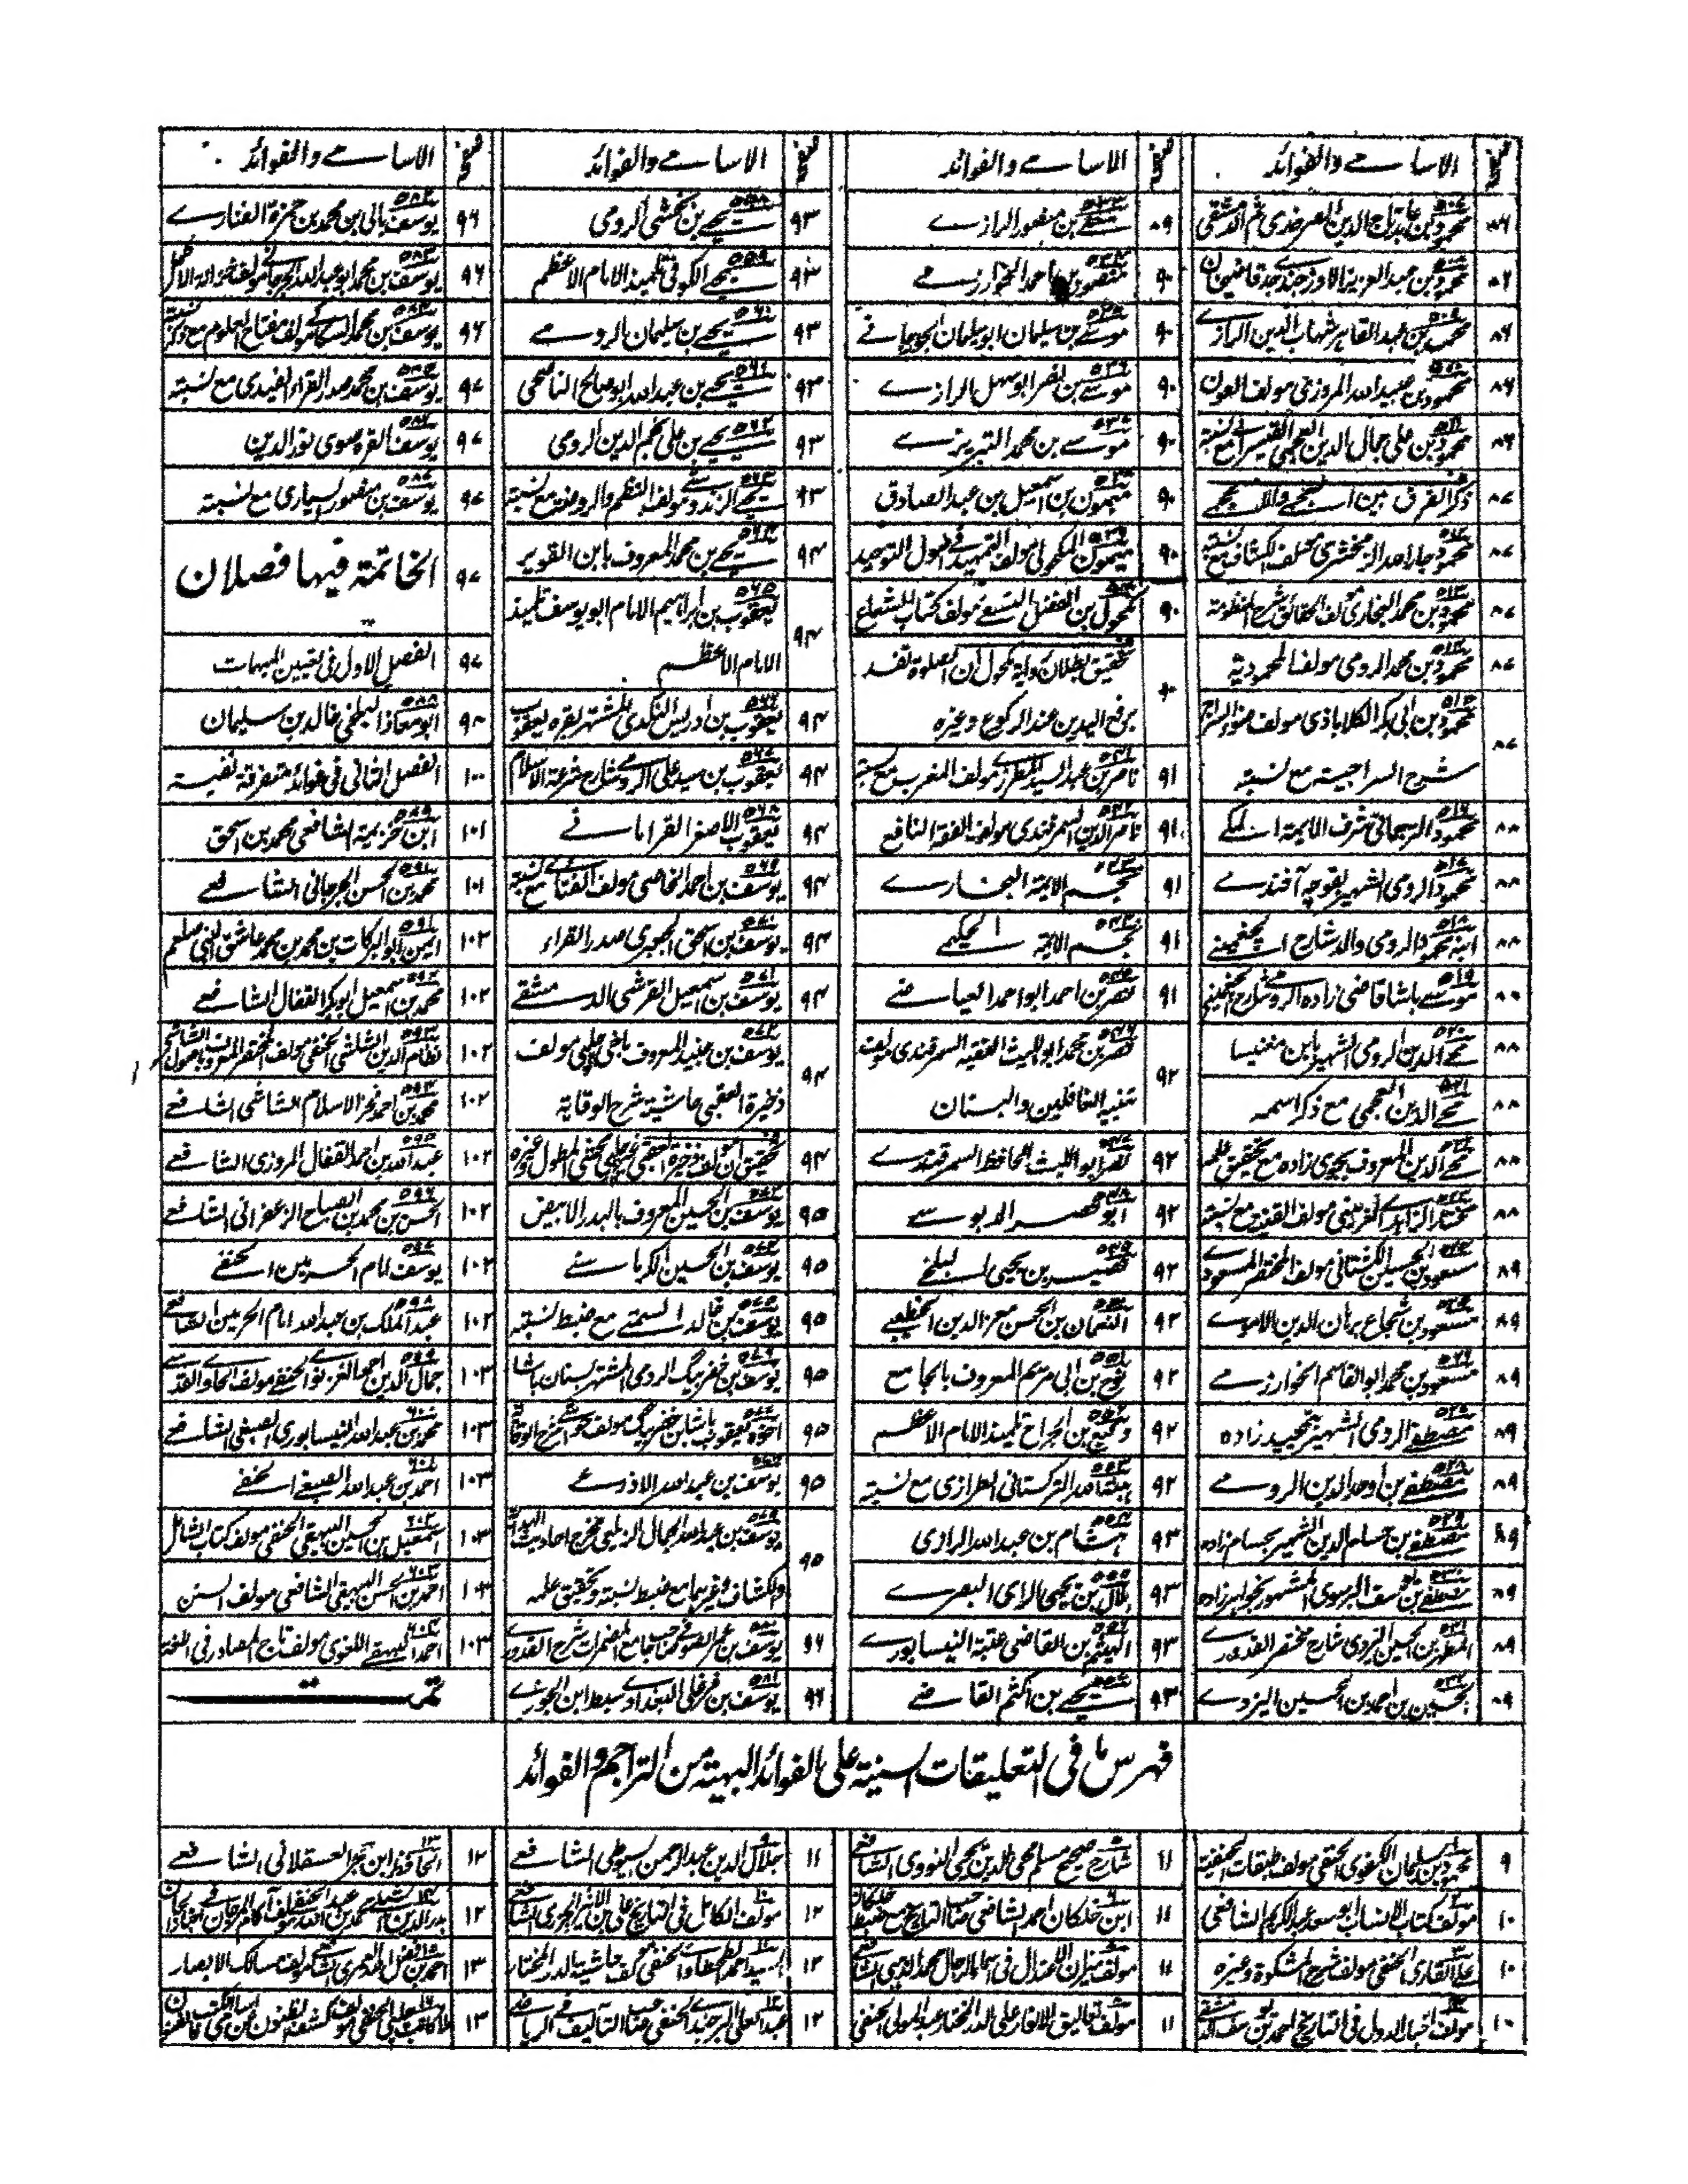 صفحہ الاسامے والفوائد
٨٦ محمود بن عابد تاج الدین الصرخدی ثم الدمشقی
٨٦ محمود بن عبد العزیز الاوزجندی جد قاضیخان
٨٦ محمد بن عبد القاهر شهاب الدین الرازے
٨٦ محمود بن عبید اللہ المروزی مولف العون
٨٦ محمود بن علی جمال الدین العجمی القیصرے مع نسبتہ
٨٧ ذکر الفرق بین
٨٧ محمود جار اللہ الزمخشری مولف الکشاف مع نسبتہ
٨٧ محمود بن محمد البخاری مولف الحقائق شرح المنظومة
٨٧ محمود بن محمد الرومی مولف المحمودیة
٨٧ محمود بن ابی بکر الکلاباذی مولف ضوء السراج
شرح السراجیة مع نسبتہ
٨٨ محمود الترجمانی شرف الایمة المکے
٨٨ محمود الرومی الشهیر بقوجہ آفندے
٨٨ ابنہ محمود الرومی والد شارح الجغمینی
٨٨ موسے باشا قاضی زادہ الرومے شارح الجغمینی
٨٨ محے الدین الرومی الشهیر بابن مغنیسا
٨٨ محے الدین العجمی مع ذکر اسمہ
٨٨ محے الدین المعروف بجوی زادہ مع تحقیق علمہ
٨٨ مختار الزاہدے الغزمینی مولف القنیة مع نسبتہ
٨٩ مسعود بن الحسین الکشتانی مولف المختصر المسعودے
٨٩ مسعود بن شجاع برهان الدین الاموے
٨٩ مسعود بن محمد ابو القاسم الخوارزمے
٨٩ مصطفے الرومی الشهیر
٨٩ مصطفے بن اوحد الدین الرومے
٨٩ مصطفے بن حسام الدین الشهیر بحسام زادہ
٨٩ مصطفے بن یوسف البرسوی المشهور بخواجہ زادہ
٨٩ المطهر بن الحسین الیزدی شارح مختصر القدورے
٨٩ الحسین بن احمد بن الحسین الیزدے
صفحہ الاسامے والفوائد
٨٩ معلے بن منصور الرازے
٩٠ منصور بن احمد الخوارزمے
٩٠ موسے بن سلیمان ابو سلیمان الجوزجانے
٩٠ موسے بن نصر ابو سهل الرازے
٩٠ موسے بن محمد التبریزے
٩٠ میمون بن اسمعیل بن عبد الصادق
٩٠ میمون المکحولی مولف التمهید فی اصول التوحید
٩٠ مکحول بن الفضل النسفے مولف کتاب الشعاع
٩٠ تحقیق بطلان روایة مکحول ان الصلوة تفسد
برفع الیدین عند الرکوع وغیرہ
٩١ ناصر بن عبد السید المطرزے مولف المغرب مع نسبتہ
٩١ ناصر الدین السمرقندی مولف الفقہ النافع
٩١ نجم الایمة البخارے
٩١ نجم الایمة الحکیمے
٩١ نصر بن احمد ابو احمد العیاضے
٩٢ نصر بن محمد ابو اللیث الفقیہ السمرقندی مولف
تنبیہ الغافلین والبستان
٩٢ نصر ابو اللیث الحافظ السمرقندے
٩٢ ابو نصر الدبوسے
٩٢ نصیر بن یحیی البلخے
٩٢ النعمان بن الحسن معز الدین الخطیبے
٩٢ نوح بن ابی مریم المعروف بالجامع
٩٢ وکیع بن الجراح تلمیذ الامام الاعظم
٩٢ هبة اللہ الترکستانی الطرازی مع نسبتہ
٩٣ هشام بن عبد اللہ الرازی
٩٣ هلال بن یحیی الرای البصرے
٩٣ الهیثم بن القاضی عتبة النیسابورے
٩٣ یحیے بن اکثم القاضے
صفحہ الاسامے والفوائد
٩٣ یحیے بن بخشی الرومی
٩٣ یحیے الکوفی تلمیذ الامام الاعظم
٩٣ یحیے بن سلیمان الرومے
٩٣ یحیے بن عبد اللہ ابو صالح الناصحی
٩٣ یحیے بن علی نجم الدین الرومی
٩٣ یحیے الزندویستے مولف النظم والروضة مع نسبتہ
٩٤ یحیے بن محمد المعروف بابن القویر
٩٤ یعقوب بن ابراہیم الامام ابو یوسف تلمیذ
الامام الاعظم
٩٤ یعقوب بن ادریس النکدی المشتهر بقرہ یعقوب
٩٤ یعقوب بن سید علی الرومے شارح شرعة الاسلام
٩٤ یعقوب الاصغر القرامانے
٩٤ یوسف بن احمد الخاصی مولف الفتاوے مع نسبتہ
٩٤ یوسف بن اسحق الجعبری صدر القراء
٩٤ یوسف بن اسمعیل القرشی الدمشقے
٩٤ یوسف بن جنید المعروف باخی چلپی مولف
ذخیرة العقبی حاشیة شرح الوقایة
٩٤ تحقیق ان مولف ذخیرة العقبی غیر چلپی محشی المطول وغیرہ
٩٥ یوسف بن الحسین المعروف بالبدر الابیض
٩٥ یوسف بن الحسین الکرماسنے
٩٥ یوسف بن خالد السمتے مع ضبط نسبتہ
٩٥ یوسف بن خضر بیگ الرومی المشتهر بسنان باشا
٩٥ اخوہ یعقوب باشا بن خضر بیگ مولف حواشے شرح الوقایة
٩٥ یوسف بن عبد اللہ الاذرعے
٩٥ یوسف بن عبد اللہ الجمال الزیلعی مخرج احادیث الهدایة
والکشاف وغیرہما مع ضبط نسبتہ وتحقیق علمہ
٩٦ یوسف بن عمر الصوفے صاحب جامع المضمرات شرح القدورے
٩٦ یوسف بن فرغلی البغدادے سبط ابن الجوزے
صفحہ الاسامے والفوائد
٩٦ یوسف بالی بن محمد بن حمزة الفنارے
٩٦ یوسف بن محمد ابو عبد اللہ الجرجانے مولف خزانة الاکمل
٩٦ یوسف بن محمد السکاکے مولف مفتاح العلوم مع ذکر نسبتہ
٩٧ یوسف بن محمد صدر القراء الفیدی مع نسبتہ
٩٧ یوسف القرہ صوی نور الدین
٩٧ یوسف بن منصور السیاری مع نسبتہ
٩٧ الخاتمة فیها فصلان
٩٧ الفصل الاول فی تعیین المبهمات
٩٨ ابو معاذ البلخی خالد بن سلیمان
١٠٠ الفصل الثانی فی فوائد متفرقة نفیسة
١٠١ ابن خزیمة الشافعی محمد بن اسحق
١٠١ محمد بن الحسن الجرجانی الشافعے
١٠٢ ایمن ابو البرکات بن محمد بن محمد عاشق النبی صلعم
١٠٢ محمد بن اسمعیل ابو بکر القفال الشافعے
١٠٢ نظام الدین الشاشی الحنفی مولف المختصر المعروف باصول الشاشی
١٠٢ محمد بن احمد فخر الاسلام الشاشی الشافعے
١٠٢ عبد اللہ بن احمد القفال المروزی الشافعے
١٠٢ الحسن بن محمد بن الصباح الزعفرانی الشافعے
١٠٢ یوسف امام الحرمین الحنفے
١٠٢ عبد الملک بن عبد اللہ امام الحرمین الشافعے
١٠٣ جمال الدین احمد الغزنوے الحنفے مولف الحاوے القدسے
١٠٣ محمد بن عبد اللہ النیسابوری الصبغی الشافعے
١٠٣ احمد بن عبد اللہ الصبغے الحنفے
١٠٣ اسمعیل بن الحسین البیهقی الحنفی مولف کتاب الشامل
١٠٣ احمد بن الحسین البیهقی الشافعی مولف السنن
١٠٣ احمد البیهقے اللغوی مولف تاج المصادر فی اللغة
تمت
فهرس ما فی التعلیقات السنیة علی الفوائد البهیة من التراجم والفوائد
٩ محمود بن سلیمان الکفوی الحنفی مولف طبقات الحنفیة
١٠ مولف کتاب الانساب ابو سعد عبد الکریم الشافعی
١٠ علے القاری الحنفی مولف شرح المشکوة وغیرہ
١٠ مولف اخبار الدول فی التاریخ احمد بن یوسف الدمشقی
١١ شارح صحیح مسلم محی الدین یحیی النووی الشافعے
١١ ابن خلکان احمد الشافعی صاحب التاریخ مع ضبط خلکان
١١ مولف میزان الاعتدال فی اسماء الرجال محمد الذهبی الشافعے
١١ مولف تعالیق الانوار علی الدر المختار عبد المولی الحنفی
١١ جلال الدین عبد الرحمن السیوطی الشافعے
١٢ مولف الکامل فی التاریخ علی بن الاثیر الجزری الشافعے
١٢ السید احمد الطحطاوے الحنفی مولف حاشیة الدر المختار
١٢ عبد العلی البرجندے الحنفی صاحب التآلیف فی الریاضے
١٢ الحافظ ابن حجر العسقلانی الشافعے
١٢ بدر الدین محمد بن عبد اللہ الحنفی مولف آکام المرجان فی احکام الجان
١٣ احمد بن فضل اللہ العمری الشافعے مولف مسالک الابصار
١٣ ملا کاتب چلپی الحنفی مولف کشف الظنون